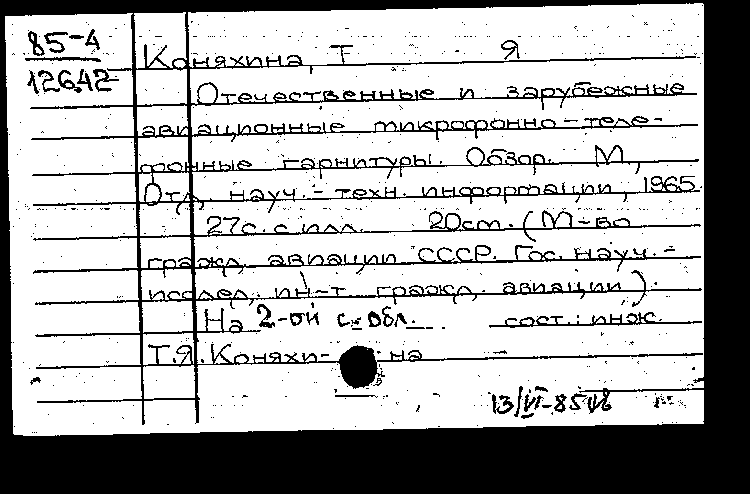 85-4
12642
Коняхина, Т Я
Отечественные и зарубежные
авиационные микрофонно-теле-
фонные гарнитуры. Обзор. М.,
Отд. науч.-техн. информации, 1965.
27с. с илл. 20см. (М-во
гражд. авиации СССР. Гос. науч.-
исслед. ин-т гражд. авиации).
На 2-ой с. обл. сост.: инж.
Т.Я. Коняхи-на
13/VI-85